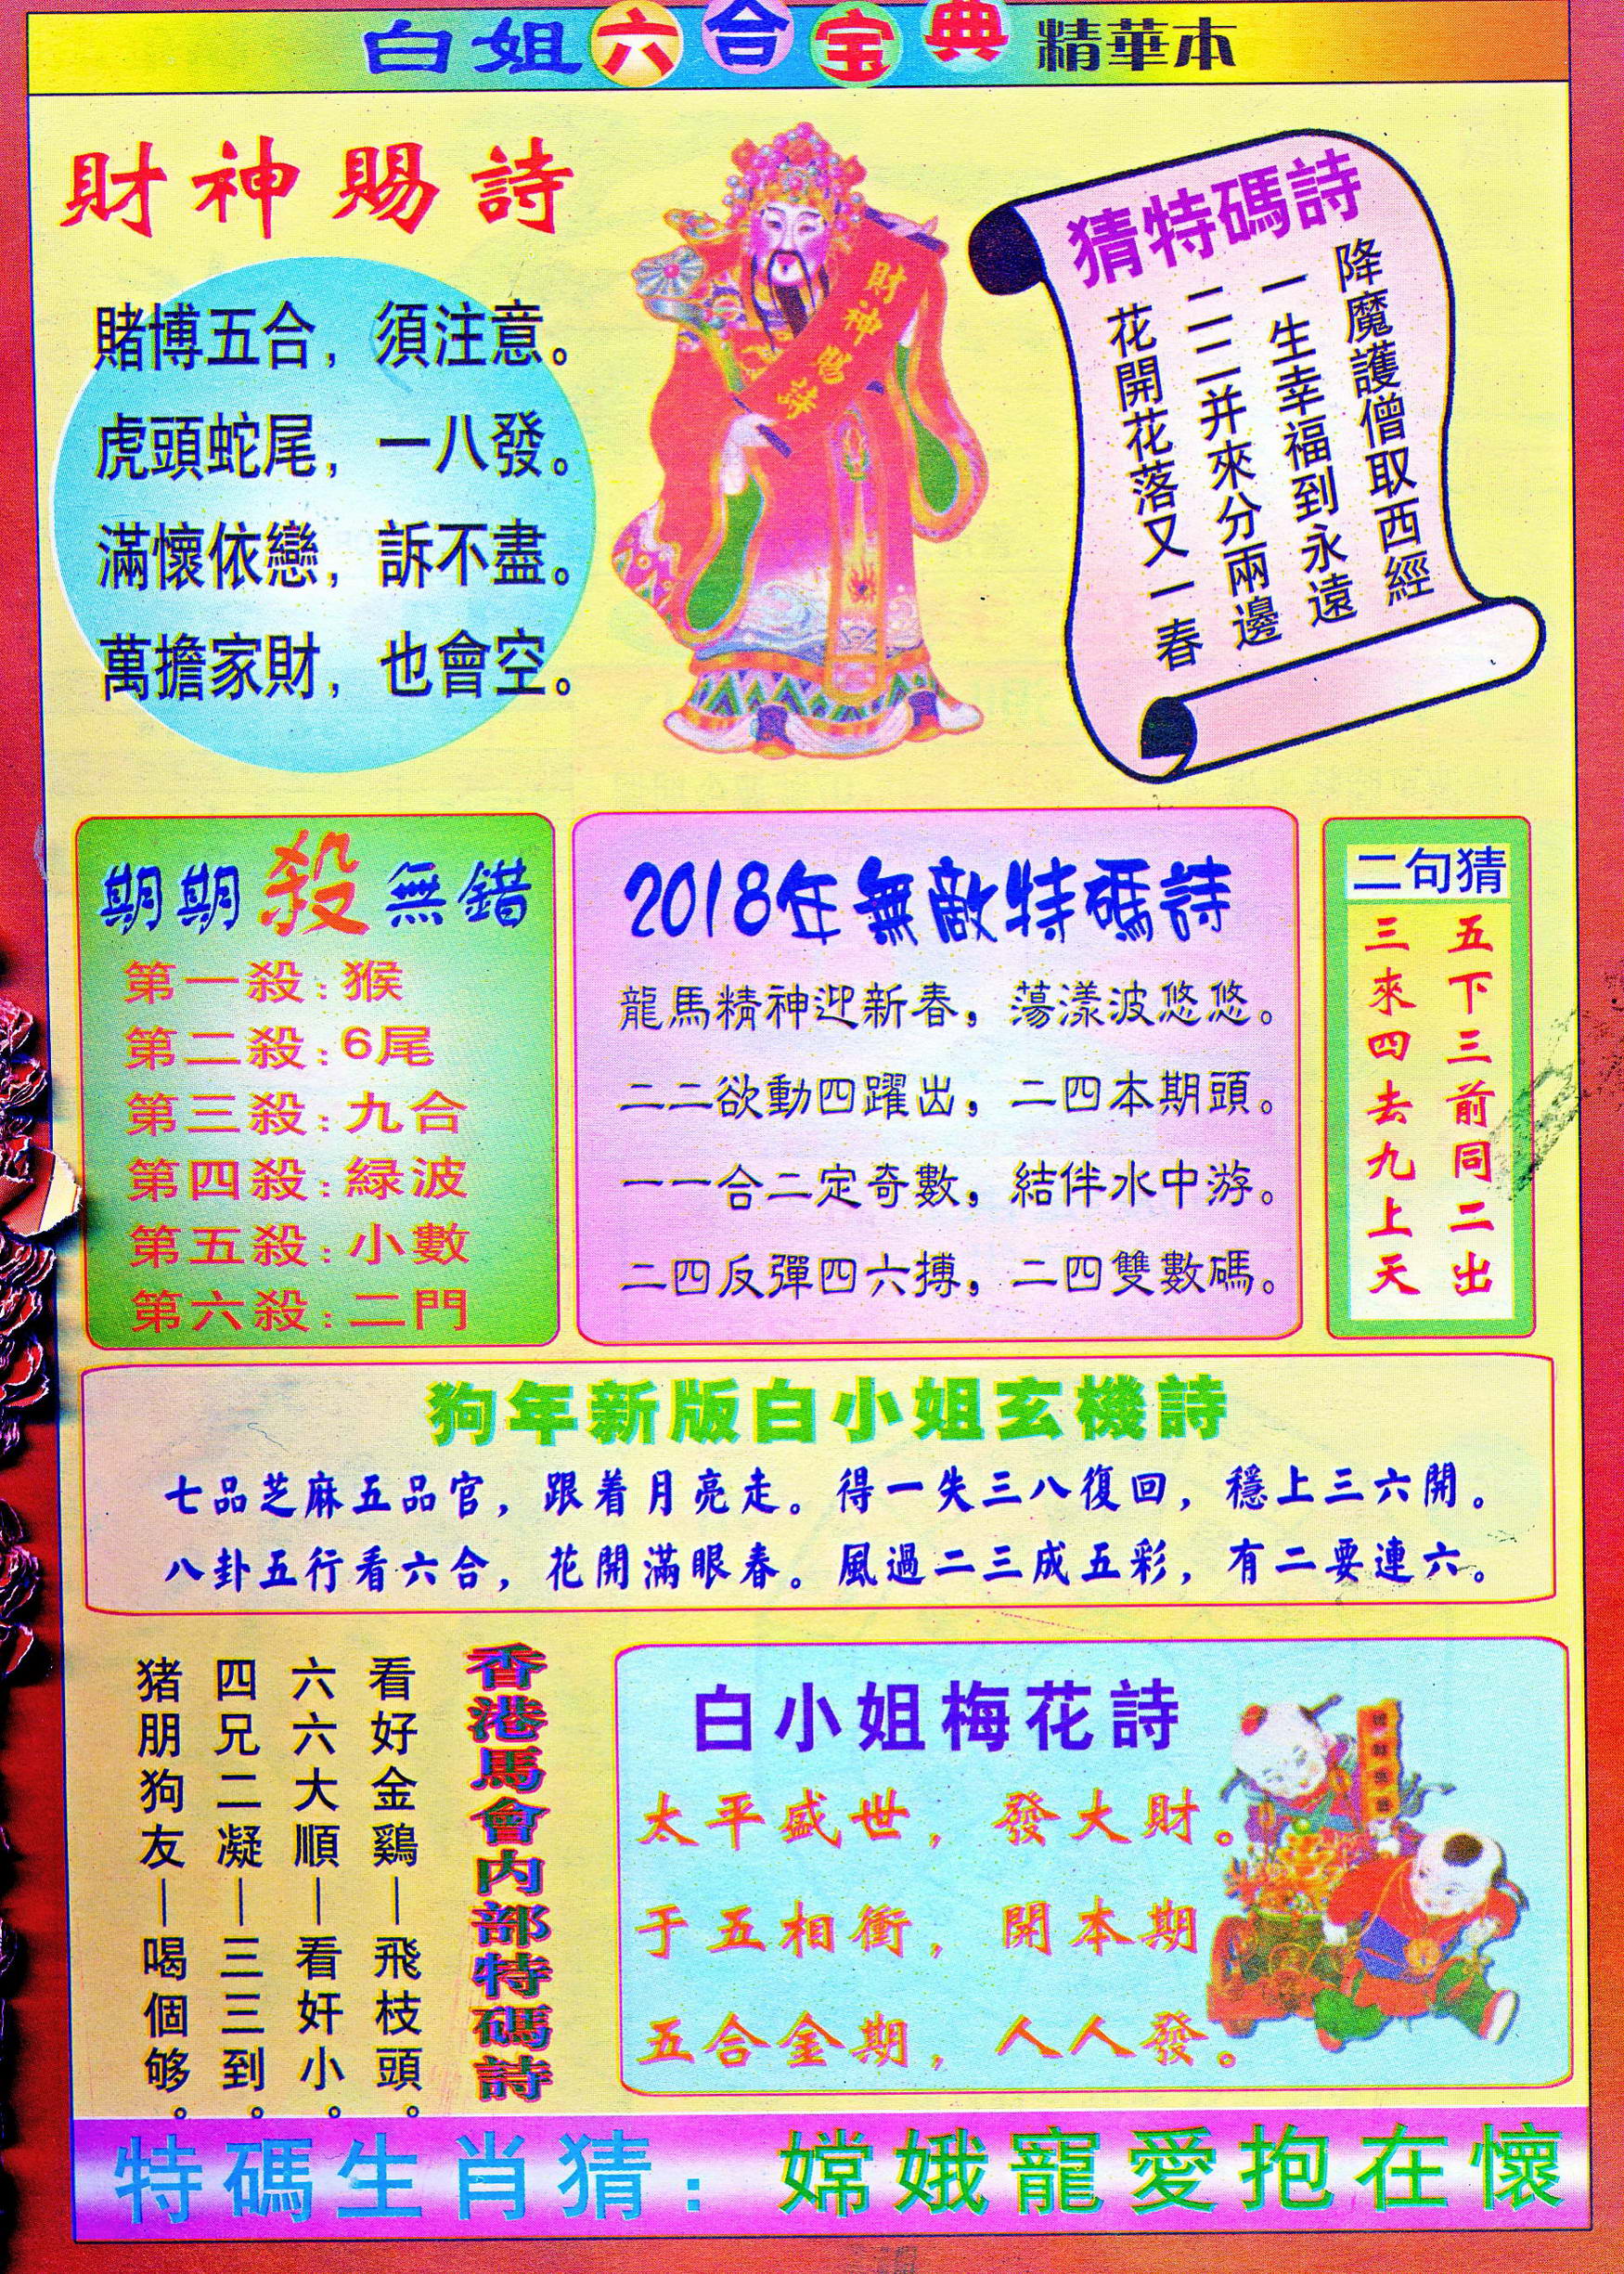 白姐六合宝典精華本
財神賜詩
賭博五合，須注意。
虎頭蛇尾，一八發。
滿懷依戀，訴不盡。
萬擔家財，也會空。
財神賜詩
猜特碼詩
降魔護僧取西經
一生幸福到永遠
二二并來分兩邊
花開花落又一春
期期殺無錯
第一殺:猴
第二殺:6尾
第三殺:九合
第四殺:緑波
第五殺:小數
第六殺:二門
2018年無敵特碼詩
龍馬精神迎新春，蕩漾波悠悠。
二二欲動四躍出，二四本期頭。
一一合二定奇數，結伴水中游。
二四反彈四六搏，二四雙數碼。
二句猜
五下三前同二出
三來四去九上天
狗年新版白小姐玄機詩
七品芝麻五品官，跟着月亮走。得一失三八復回，穩上三六開。
八卦五行看六合，花開滿眼春。風過二三成五彩，有二要連六。
香港馬會内部特碼詩
看好金鷄—飛枝頭。
六六大順—看奸小。
四兄二凝—三三到。
猪朋狗友—喝個够。
白小姐梅花詩
太平盛世，發大財。
于五相衝，開本期
五合金期，人人發。
特碼生肖猜：嫦娥寵愛抱在懷